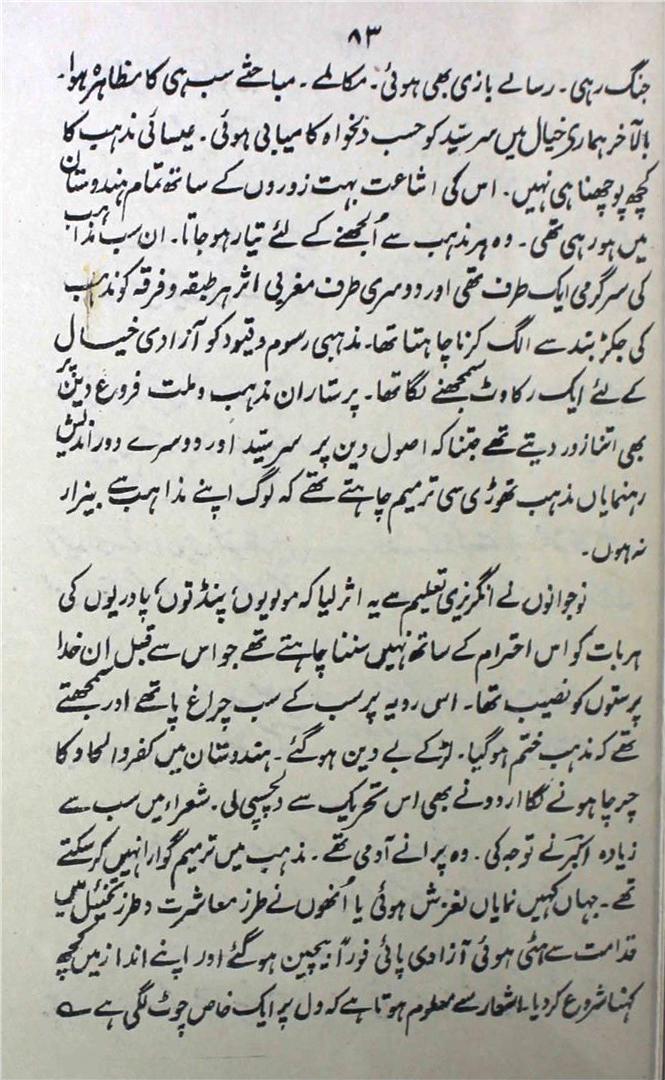 ۸۳
جنگ رہی۔ رسالے بازی بھی ہوئی۔ مکالمے۔ مباحثے سب ہی کا مظاہرہ ہوا۔
بالآخر ہماری خیال میں سرسیّد کو حسب دلخواہ کامیابی ہوئی۔ عیسائی مذہب کا
کچھ پوچھنا ہی نہیں۔ اس کی اشاعت بہت زوروں کے ساتھ تمام ہندوستان
میں ہو رہی تھی۔ وہ ہر مذہب سے اُلجھنے کے لئے تیار ہو جاتا۔ ان سب مذاہب
کی سرگرمی ایک طرف تھی اور دوسری طرف مغربی اثر ہر طبقہ و فرقہ کو مذہب
کی جکڑ بند سے الگ کرنا چاہتا تھا۔ مذہبی رسوم و قیود کو آزادی خیال
کے لئے ایک رکاوٹ سمجھنے لگا تھا۔ پرستاران مذہب و ملت فروع دین پر
بھی اتنا زور دیتے تھے جتنا کہ اصول دین پر سرسیّد اور دوسرے دور اندیش
رہنمایاں مذہب تھوڑی سی ترمیم چاہتے تھے کہ لوگ اپنے مذاہب سے بیزار
نہ ہوں۔
نوجوانوں نے انگریزی تعلیم سے یہ اثر لیا کہ مولویوں، پنڈتوں، پادریوں کی
ہر بات کو اس احترام کے ساتھ نہیں سننا چاہتے تھے جو اس سے قبل ان خدا
پرستوں کو نصیب تھا۔ اس رویہ پر سب کے سب چراغ پا تھے اور سمجھتے
تھے کہ مذہب ختم ہو گیا۔ لڑکے بے دین ہو گئے۔ ہندوستان میں کفر و الحاد کا
چرچا ہونے لگا اردو نے بھی اس تحریک سے دلچسپی لی۔ شعراء میں سب سے
زیادہ اکبرؔ نے توجہ کی۔ وہ پرانے آدمی تھے۔ مذہب میں ترمیم گوارا نہیں کر سکتے
تھے۔ جہاں کہیں نمایاں لغزش ہوئی یا اُنھوں نے طرز معاشرت و طرز تخئیل میں
قدامت سے ہٹی ہوئی آزادی پائی فوراً بیچین ہو گئے اور اپنے انداز میں کچھ
کہنا شروع کر دیا۔ اشعار سے معلوم ہوتا ہے کہ دل پر ایک خاص چوٹ لگی ہے ؎